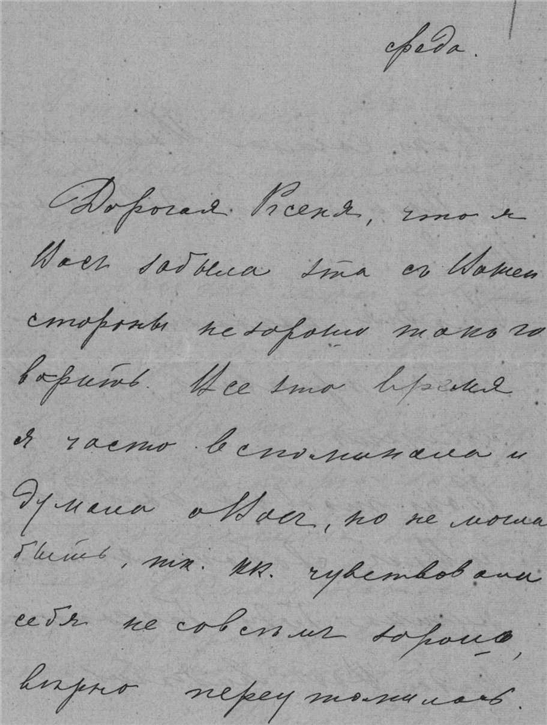 среда.
Дорогая Ксеня, что я
Васъ забыла это съ Вашей
стороны не хорошо такъ го
ворить. Все это время
я часто вспоминала и
думала о Васъ, но не могла
быть, тк. кк. чувствовала
себя не совсѣмъ хорошо,
вѣрно переутомилась.